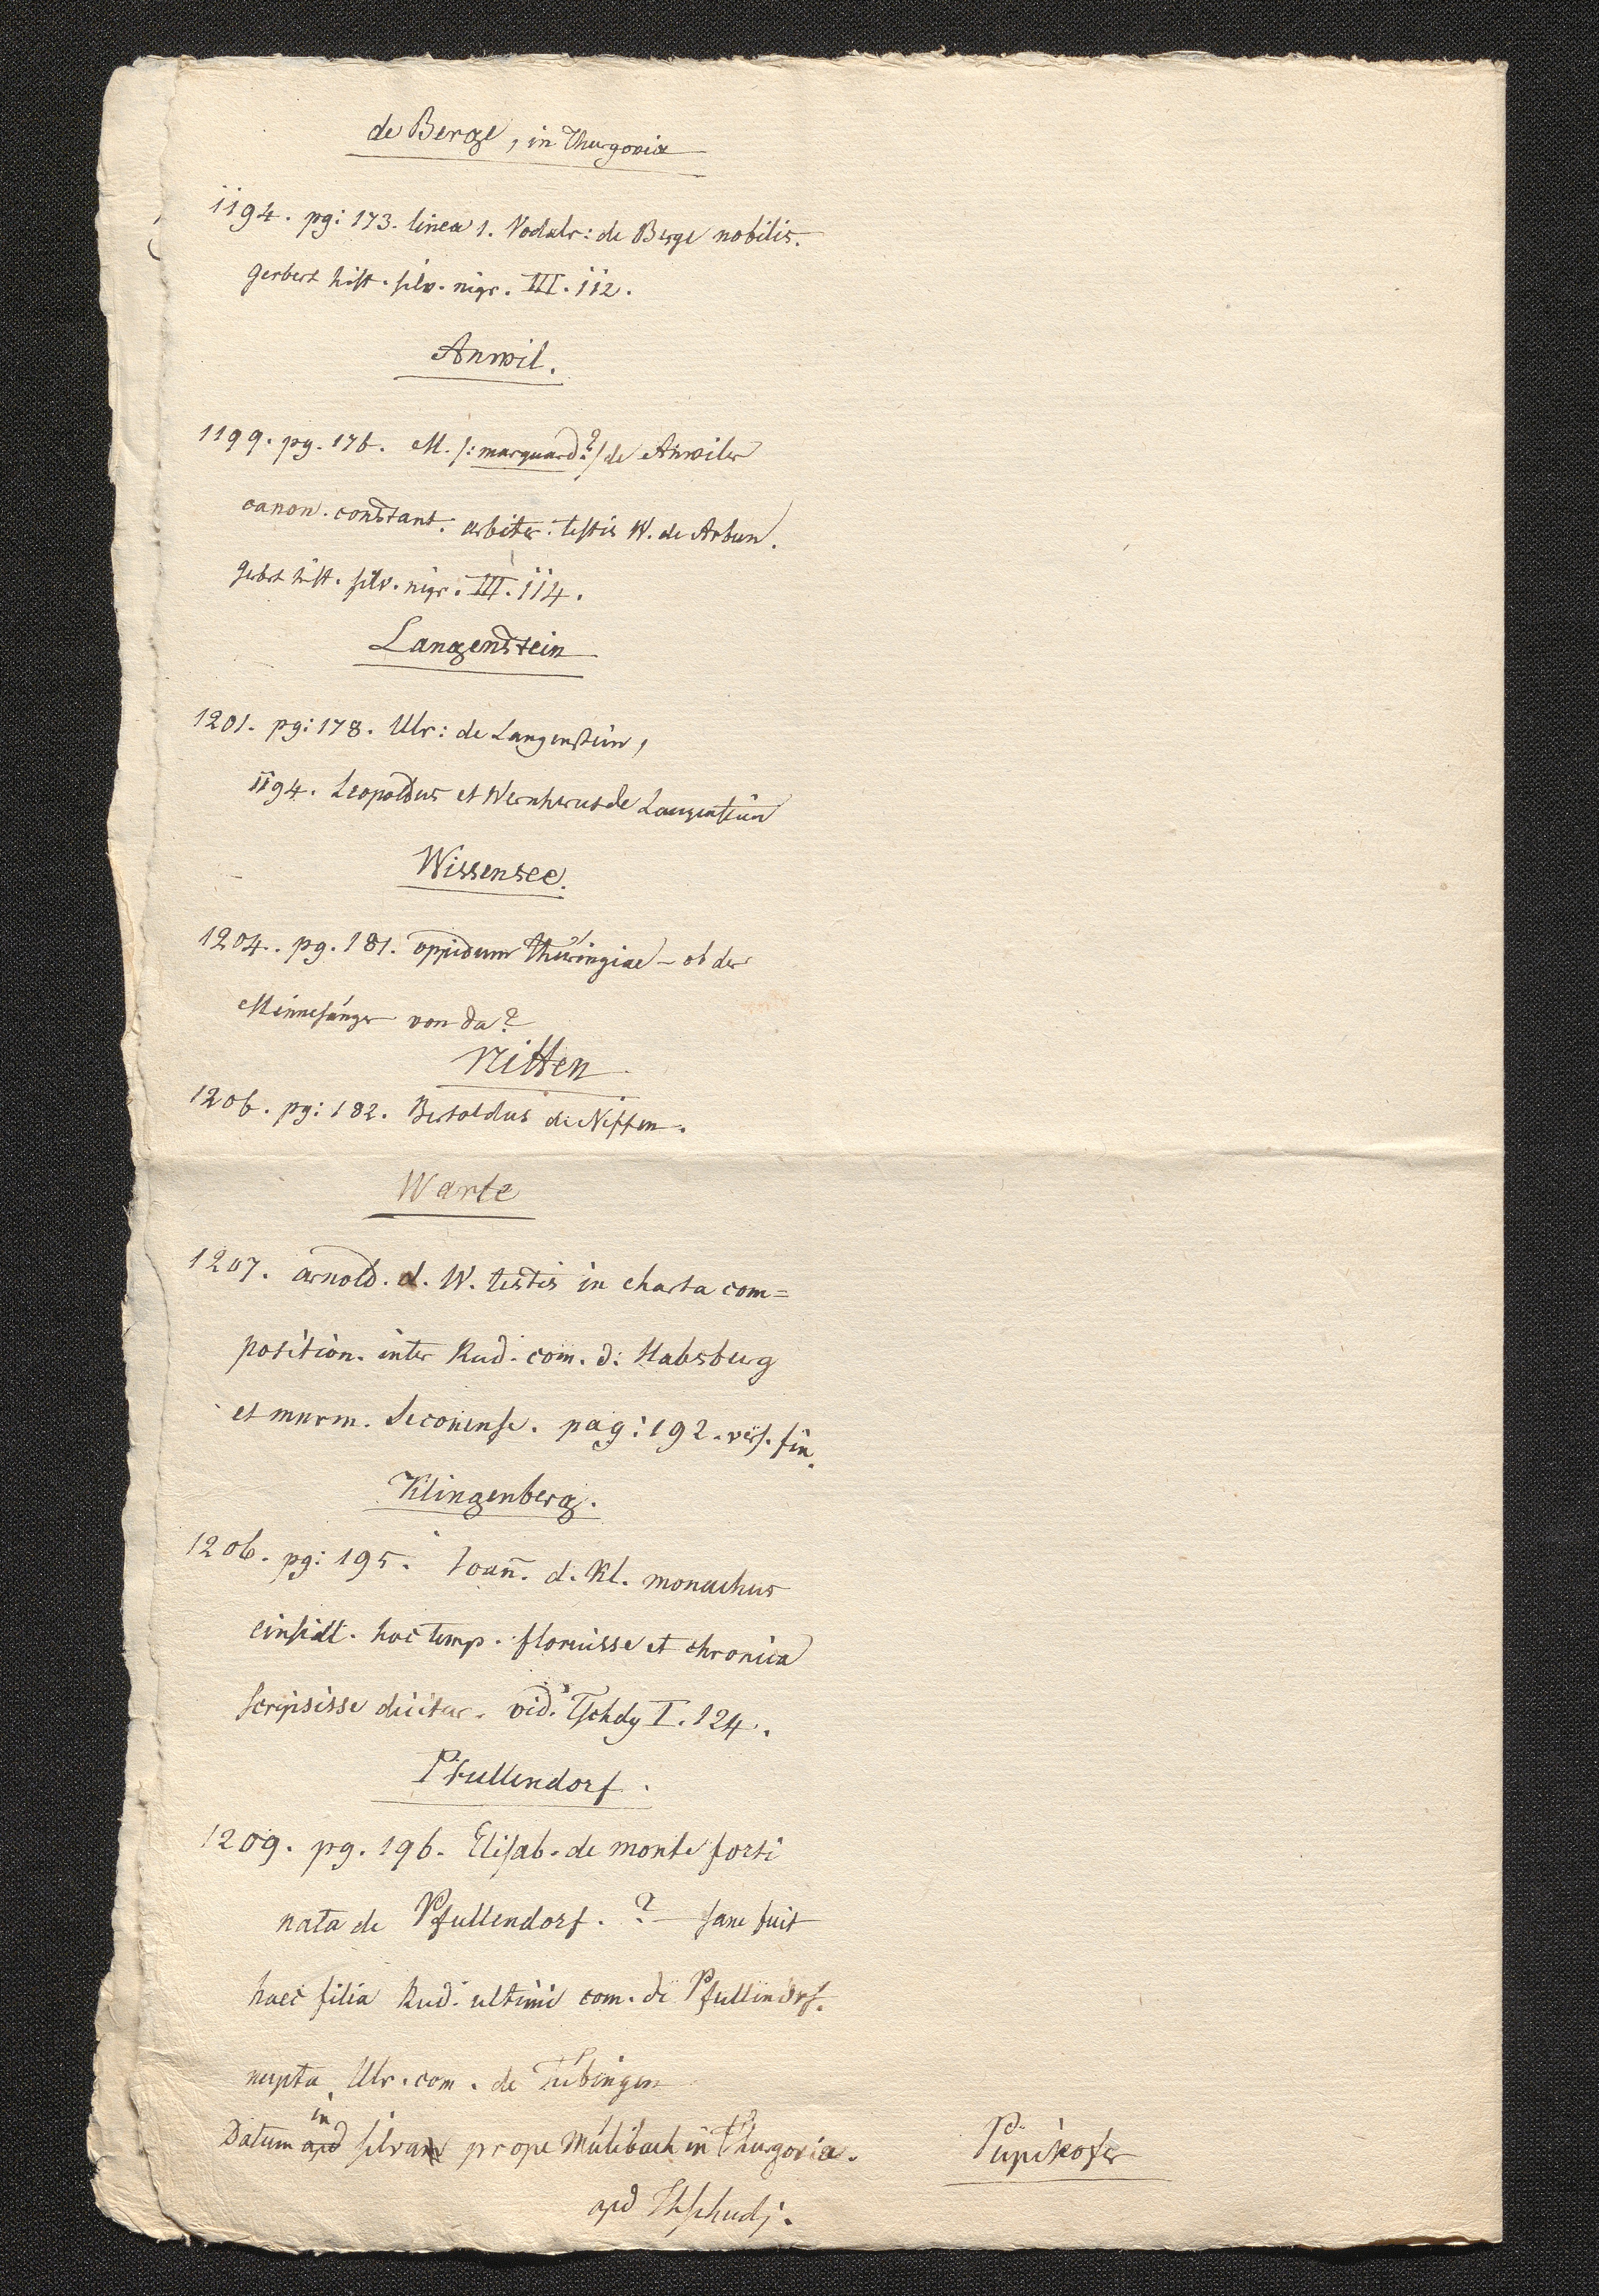 de Berge, in Thurgovia
1194. pg: 173. linea 1. Vodalr: de Berge nobilis.
Gerbert hist. silv. nigr. III. 112.
Anwil.
1199. pg. 176. M. /: marquard? :/ de Anwiler
canon. constant. arbiter: testis W. de Arbun.
Gerbrt hist. silv. nigr. III. 114.
Langenstein
1201. pg: 178. Ulr: de Langenstein,
1194. Leopoldus et Wernherus de Langenstein
Wissensee.
1204. pg. 181. oppidum Thüringiae – ob der
Minnesänger von da?
Niffen
1206. pg: 182. Bertoldus de Niffen.
Warte
1207. Arnold. d. W. testis in charta com=
position. inter Rud. com. d: Habsburg
et mnrm. Seconense. pag: 192. vers. fin.
Klingenberg.
1206. pg: 195. Joan̄. d. Kl. monachus
einsidl. hoc temp. floruisse et chronica
scripsisse dicitur. vid. Tschdy I. 124.
Pfullendorf.
1209. pg. 196. Elisab. de monte forti
nata de Pfullendorf. ? — sane fuit
haec filia Rud. ultimi com. de Pfullendrf.
nupta Ulr. com. de Tübingen
in
Datum apd silva prope Mülibach in Thurgovia.
apd Thschudj.
Pupikofer